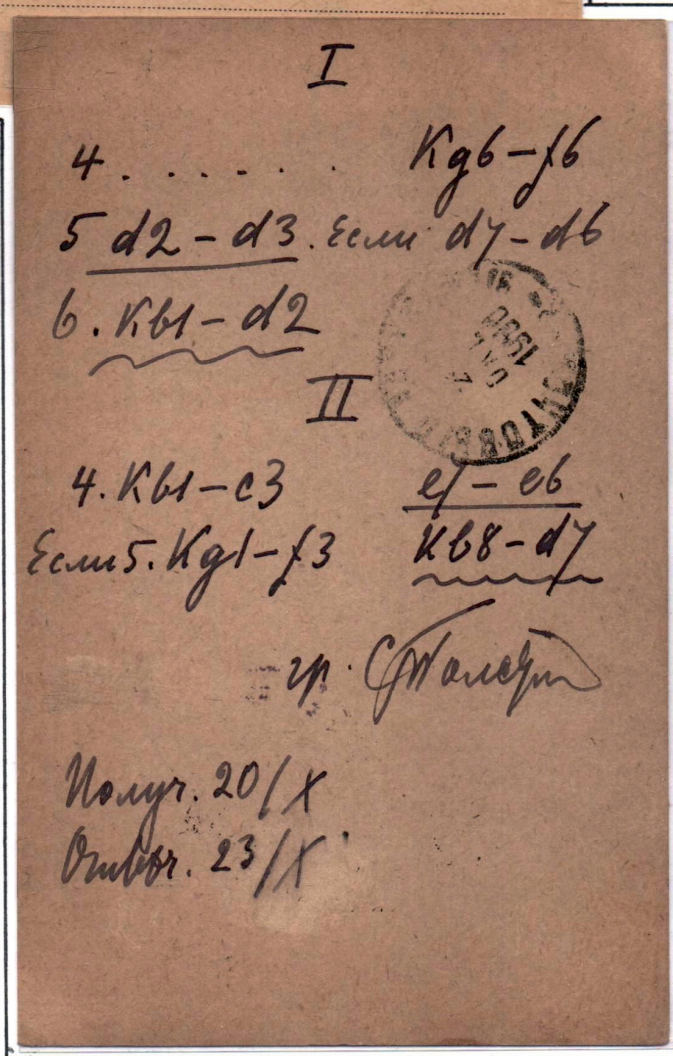 I
4 . . . . . . Кд6–f6
5 d2–d3. Если d7–d6
6. Кb1–d2
II
4. Кb1–c3 e7–e6
Если 5. Кg1–f3 Кb8–d7
гр. С. Толстой
Получ. 20/X
Отвѣч. 23/X